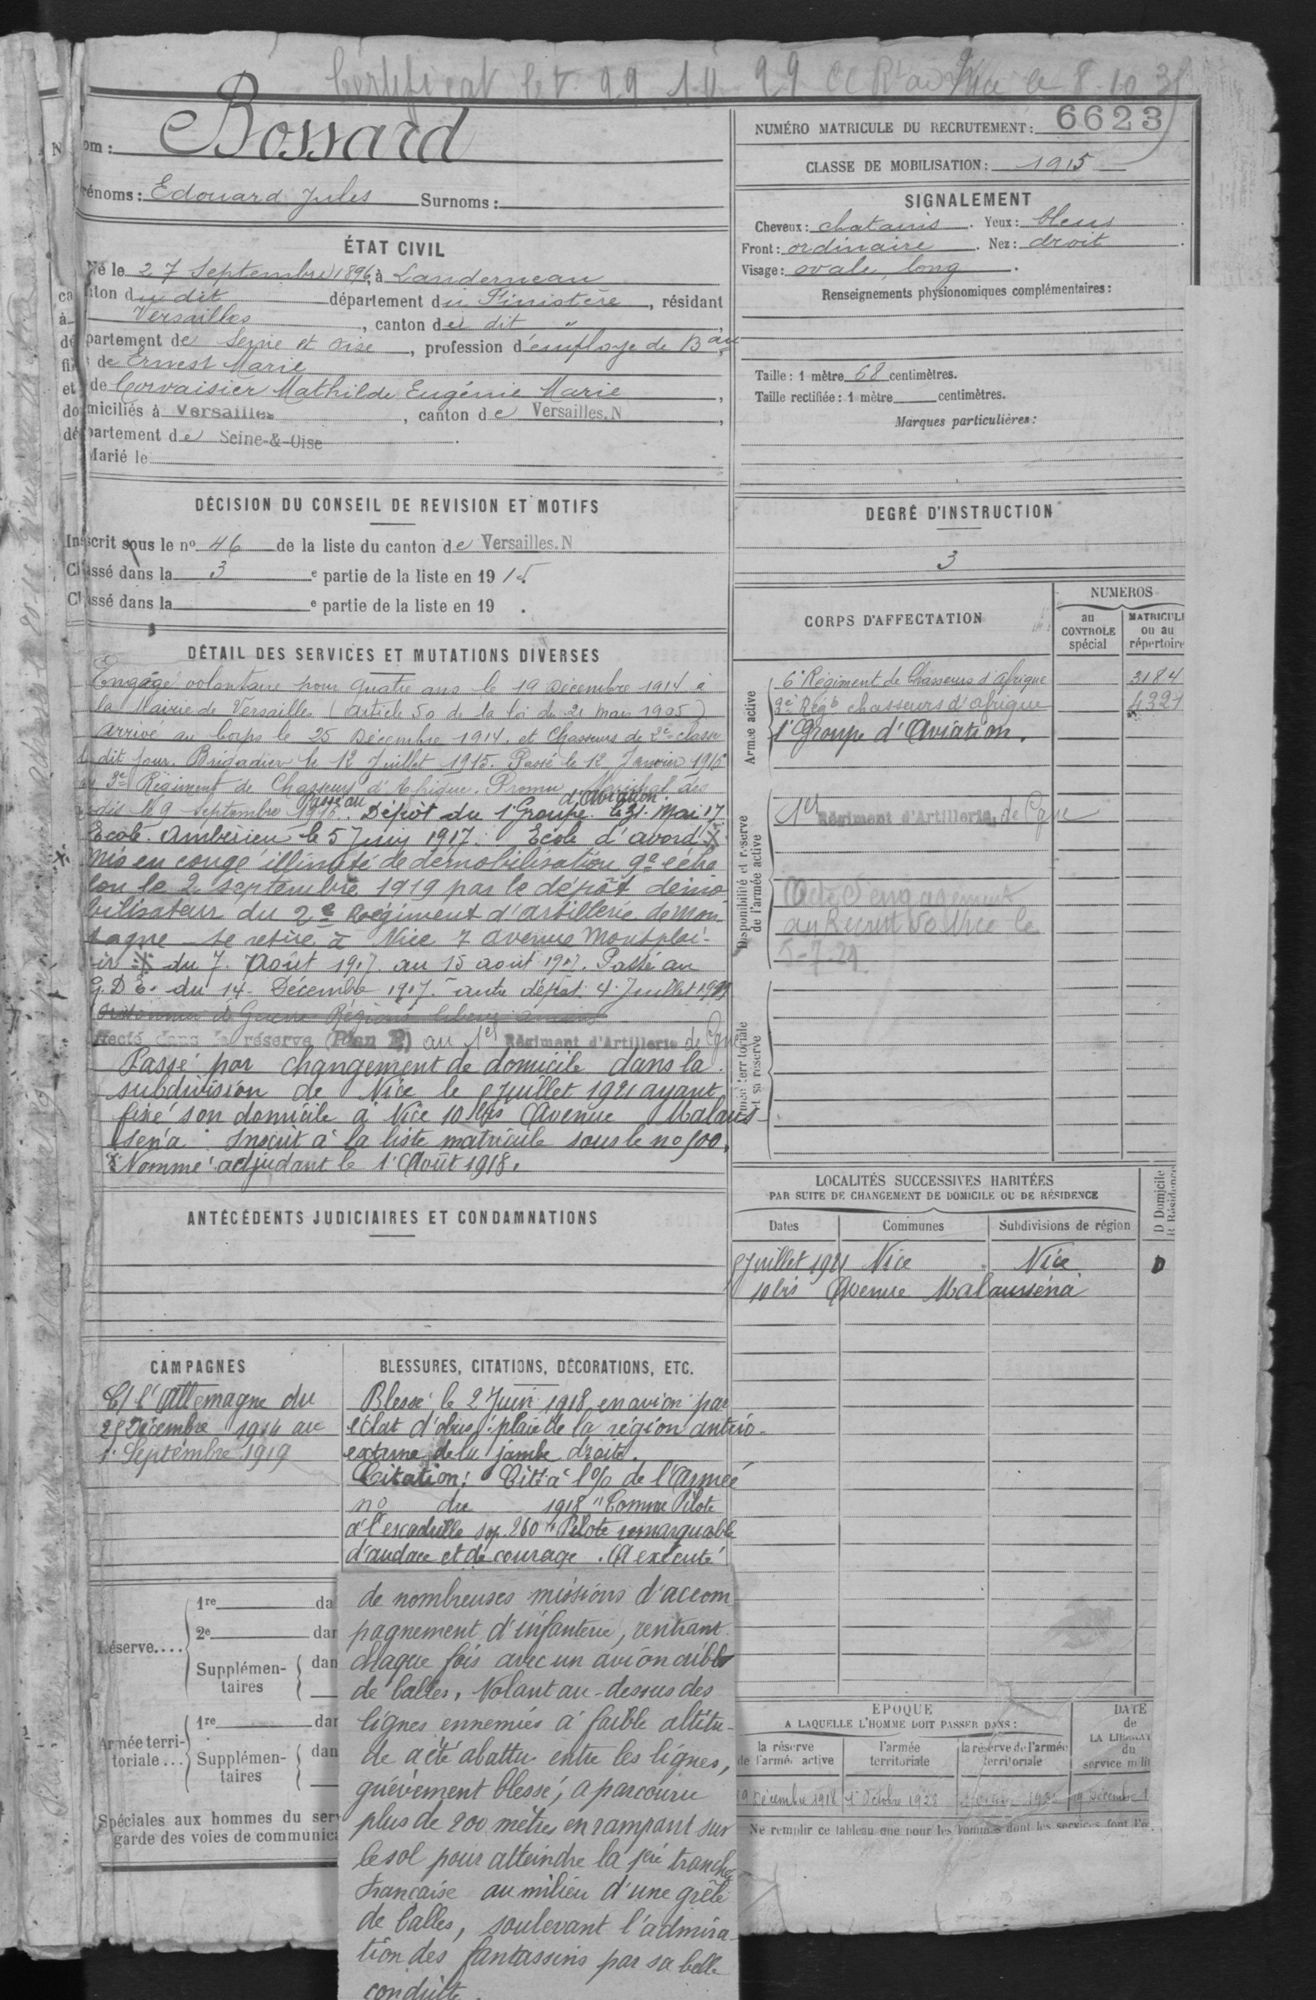 Certificat
Nom : Bossard
Prénoms : Edouard Jules Surnoms :
ÉTAT CIVIL
Né le 27 Septembre 1896, à Landerneau
canton du dit département du Finistère, résidant
à Versailles, canton de dit "
département de Seine et Oise, profession d'employé de B au
fils de Ernest Marie
et de Corvaisier Mathilde Eugénie Marie
domiciliés à Versailles, canton de Versailles.N
département de Seine-&-Oise
Marié le
DÉCISION DU CONSEIL DE REVISION ET MOTIFS
Inscrit sous le nº 46 de la liste du canton de Versailles.N
Classé dans la 3 e partie de la liste en 1915.
Classé dans la e partie de la liste en 19 .
DÉTAIL DES SERVICES ET MUTATIONS DIVERSES
Engagé volontaire pour quatre ans le 19 Décembre 1914 à
la Mairie de Versailles (article 50 de la loi du 21 mars 1905)
Arrivé au Corps le 25 Décembre 1914, et Chasseurs de 2e classe
le dit jour. Brigadier le 12 Juillet 1915. Passé le 12 Janvier 1916
au 3e Régiment de Chasseurs d'Afrique. Promu Maréchal des
logis le 9 Septembre 1916. Passé au Dépôt du 1er Groupe d'Aviation le 31 Mai 17
Ecole Ambérieu le 5 Juin 1917. Ecole d'avord
Mis en congé illimité de démobilisation 9e éche
lon le 2 septembre 1919 par le dépôt démo
bilisateur du 2e Régiment d'artillerie de mon
tagne se retire à Nice 7 avenue Montplai-
sir du 7 Août 1917 au 15 août 1917. Passé au
G.D.E. du 14 Décembre 1917. autre dépôt 4 Juillet
Affecté dans la réserve (Plan P) au 1er Régiment d'Artillerie de Cgne
Passé par changement de domicile dans la
subdivision de Nice le 8 Juillet 1921 ayant
fixé son domicile à Nice 10 bis Avenue Malaus-
séna. Inscrit à la liste matricule sous le no 500.
Nommé adjudant le 1er Août 1918.
ANTÉCÉDENTS JUDICIAIRES ET CONDAMNATIONS
CAMPAGNES
C/ l'Allemagne du
25 Décembre 1914 au
1er Septembre 1919
BLESSURES, CITATIONS, DÉCORATIONS, ETC.
Blessé le 2 Juin 1918 en avion par
éclat d'obus : plaie de la région antéro-
externe de la jambe droite.
Citation : Cité à l'O/ de l'Armée
no du 1918 "Comme Pilote
à l'escadrille sop. 260 "Pilote remarquable
d'audace et de courage. A exécuté
de nombreuses missions d'accom
pagnement d'infanterie, rentrant
chaque fois avec un avion criblé
de balles. Volant au-dessus des
lignes ennemies à faible altitu-
de a été abattu entre les lignes,
grièvement blessé, a parcouru
plus de 200 mètres en rampant sur
le sol pour atteindre la 1ère tranchée
française au milieu d'une grêle
de balles, soulevant l'admira-
tion des fantassins par sa belle
conduite.
Réserve....
1re da
2e dan
Supplémen-
taires dan
Armée terri-
toriale...
1re dan
Supplémen-
taires dan
Spéciales aux hommes du ser
garde des voies de communica
NUMÉRO MATRICULE DU RECRUTEMENT : 6623
CLASSE DE MOBILISATION : 1915
SIGNALEMENT
Cheveux : chatains. Yeux : bleus
Front : ordinaire. Nez : droit
Visage : ovale long.
Renseignements physionomiques complémentaires :
Taille : 1 mètre 68 centimètres.
Taille rectifiée : 1 mètre centimètres.
Marques particulières :
DEGRÉ D'INSTRUCTION
3
CORPS D'AFFECTATION
NUMÉROS
au CONTROLE spécial
MATRICULE ou au répertoire
Armée active
6e Régiment de Chasseurs d'Afrique 3184
3e Régt chasseurs d'afrique 4327
1er Groupe d'Aviation.
Disponibilité et réserve de l'armée active
1er Régiment d'Artillerie, de Cgne
Acte d'engagement
au Recrut de Nice le
5-7-21
Armée territoriale et sa réserve
LOCALITÉS SUCCESSIVES HABITÉES
PAR SUITE DE CHANGEMENT DE DOMICILE OU DE RÉSIDENCE
Dates Communes Subdivisions de région D Domicile R Résidence
8 Juillet 1921 Nice Nice D
10 bis Avenue Malausséna
ÉPOQUE
A LAQUELLE L'HOMME DOIT PASSER DANS :
la réserve de l'armée active
l'armée territoriale
la réserve de l'armée territoriale
DATE de LA LIBÉRAT du service milit
19 Décembre 1918 1er Octobre 1928 19 Décembre 1
Ne remplir ce tableau que pour les hommes dont les services font l'o